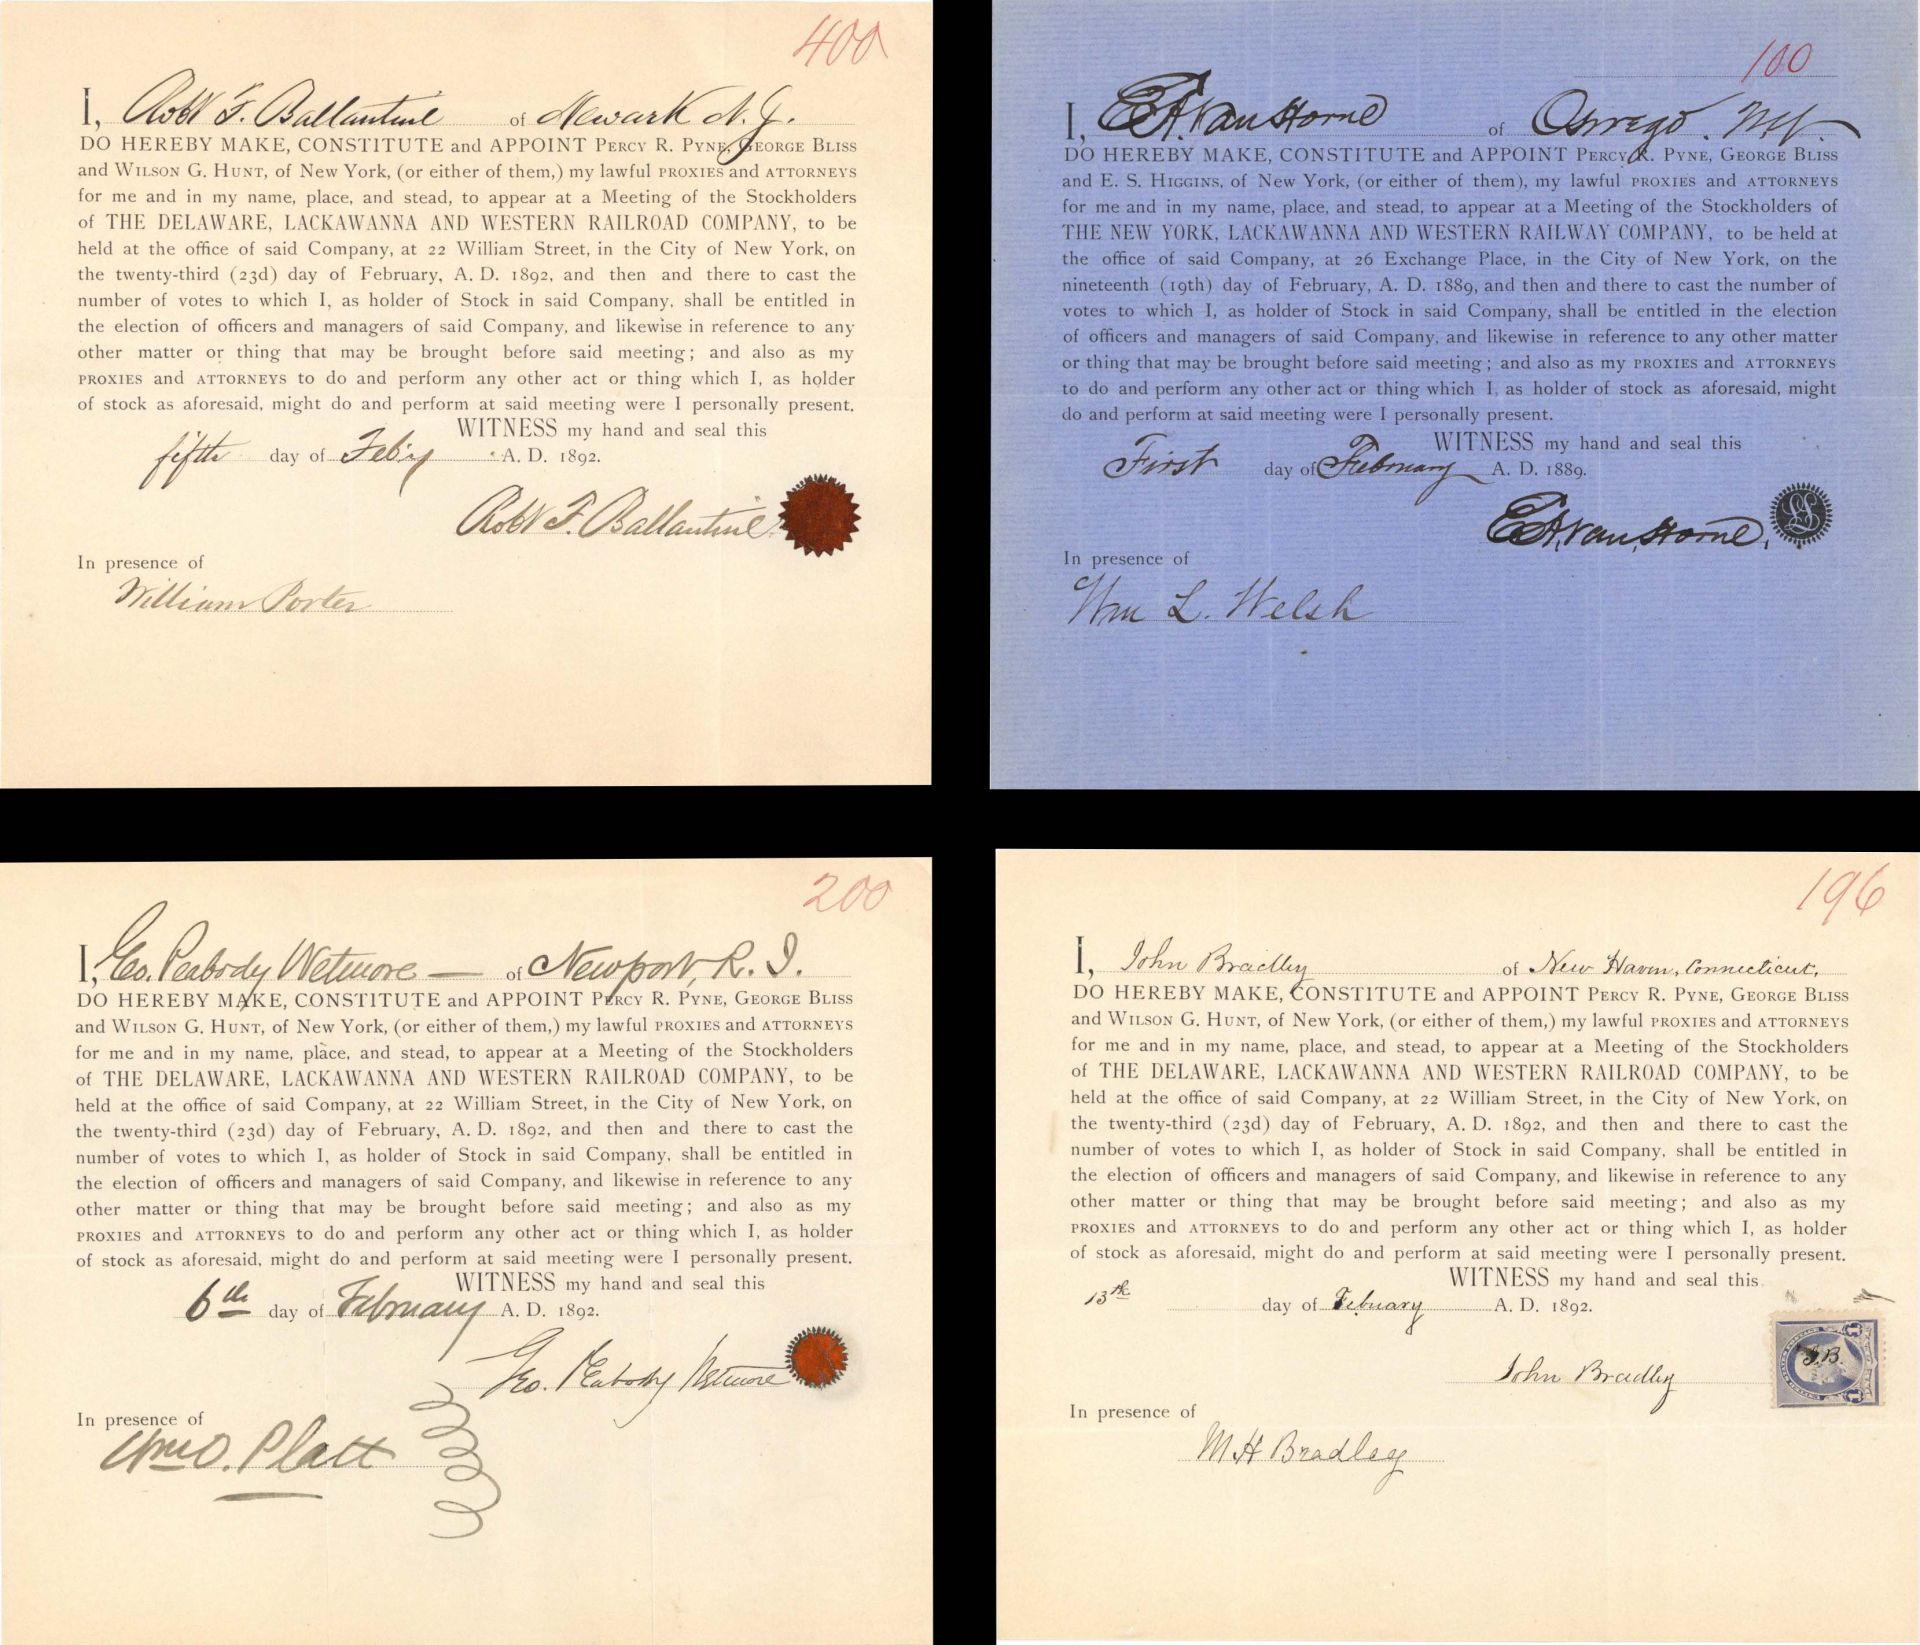 400
I, Robt F. Ballantine of Newark N. J.
DO HEREBY MAKE, CONSTITUTE and APPOINT PERCY R. PYNE, GEORGE BLISS
and WILSON G. HUNT, of New York, (or either of them,) my lawful PROXIES and ATTORNEYS
for me and in my name, place, and stead, to appear at a Meeting of the Stockholders
of THE DELAWARE, LACKAWANNA AND WESTERN RAILROAD COMPANY, to be
held at the office of said Company, at 22 William Street, in the City of New York, on
the twenty-third (23d) day of February, A. D. 1892, and then and there to cast the
number of votes to which I, as holder of Stock in said Company, shall be entitled in
the election of officers and managers of said Company, and likewise in reference to any
other matter or thing that may be brought before said meeting; and also as my
PROXIES and ATTORNEYS to do and perform any other act or thing which I, as holder
of stock as aforesaid, might do and perform at said meeting were I personally present.
WITNESS my hand and seal this
fifth day of Feb'y A. D. 1892.
Robt F. Ballantine
In presence of
William Porter
100
I, E. A. Van Horne of Oswego, N.Y.
DO HEREBY MAKE, CONSTITUTE and APPOINT PERCY R. PYNE, GEORGE BLISS
and E. S. HIGGINS, of New York, (or either of them), my lawful PROXIES and ATTORNEYS
for me and in my name, place, and stead, to appear at a Meeting of the Stockholders of
THE NEW YORK, LACKAWANNA AND WESTERN RAILWAY COMPANY, to be held at
the office of said Company, at 26 Exchange Place, in the City of New York, on the
nineteenth (19th) day of February, A. D. 1889, and then and there to cast the number of
votes to which I, as holder of Stock in said Company, shall be entitled in the election
of officers and managers of said Company, and likewise in reference to any other matter
or thing that may be brought before said meeting; and also as my PROXIES and ATTORNEYS
to do and perform any other act or thing which I, as holder of stock as aforesaid, might
do and perform at said meeting were I personally present.
WITNESS my hand and seal this
First day of February A. D. 1889.
E. A. Van Horne.
LS
In presence of
Wm L. Welsh
200
I, Geo. Peabody Wetmore — of Newport, R. I.
DO HEREBY MAKE, CONSTITUTE and APPOINT PERCY R. PYNE, GEORGE BLISS
and WILSON G. HUNT, of New York, (or either of them,) my lawful PROXIES and ATTORNEYS
for me and in my name, place, and stead, to appear at a Meeting of the Stockholders
of THE DELAWARE, LACKAWANNA AND WESTERN RAILROAD COMPANY, to be
held at the office of said Company, at 22 William Street, in the City of New York, on
the twenty-third (23d) day of February, A. D. 1892, and then and there to cast the
number of votes to which I, as holder of Stock in said Company, shall be entitled in
the election of officers and managers of said Company, and likewise in reference to any
other matter or thing that may be brought before said meeting; and also as my
PROXIES and ATTORNEYS to do and perform any other act or thing which I, as holder
of stock as aforesaid, might do and perform at said meeting were I personally present.
WITNESS my hand and seal this
6th day of February A. D. 1892.
Geo. Peabody Wetmore
In presence of
Wm O. Platt
196
I, John Bradley of New Haven, Connecticut,
DO HEREBY MAKE, CONSTITUTE and APPOINT PERCY R. PYNE, GEORGE BLISS
and WILSON G. HUNT, of New York, (or either of them,) my lawful PROXIES and ATTORNEYS
for me and in my name, place, and stead, to appear at a Meeting of the Stockholders
of THE DELAWARE, LACKAWANNA AND WESTERN RAILROAD COMPANY, to be
held at the office of said Company, at 22 William Street, in the City of New York, on
the twenty-third (23d) day of February, A. D. 1892, and then and there to cast the
number of votes to which I, as holder of Stock in said Company, shall be entitled in
the election of officers and managers of said Company, and likewise in reference to any
other matter or thing that may be brought before said meeting; and also as my
PROXIES and ATTORNEYS to do and perform any other act or thing which I, as holder
of stock as aforesaid, might do and perform at said meeting were I personally present.
WITNESS my hand and seal this
13th day of Febuary A. D. 1892.
John Bradley
J.B.
1 1
In presence of
M H Bradley